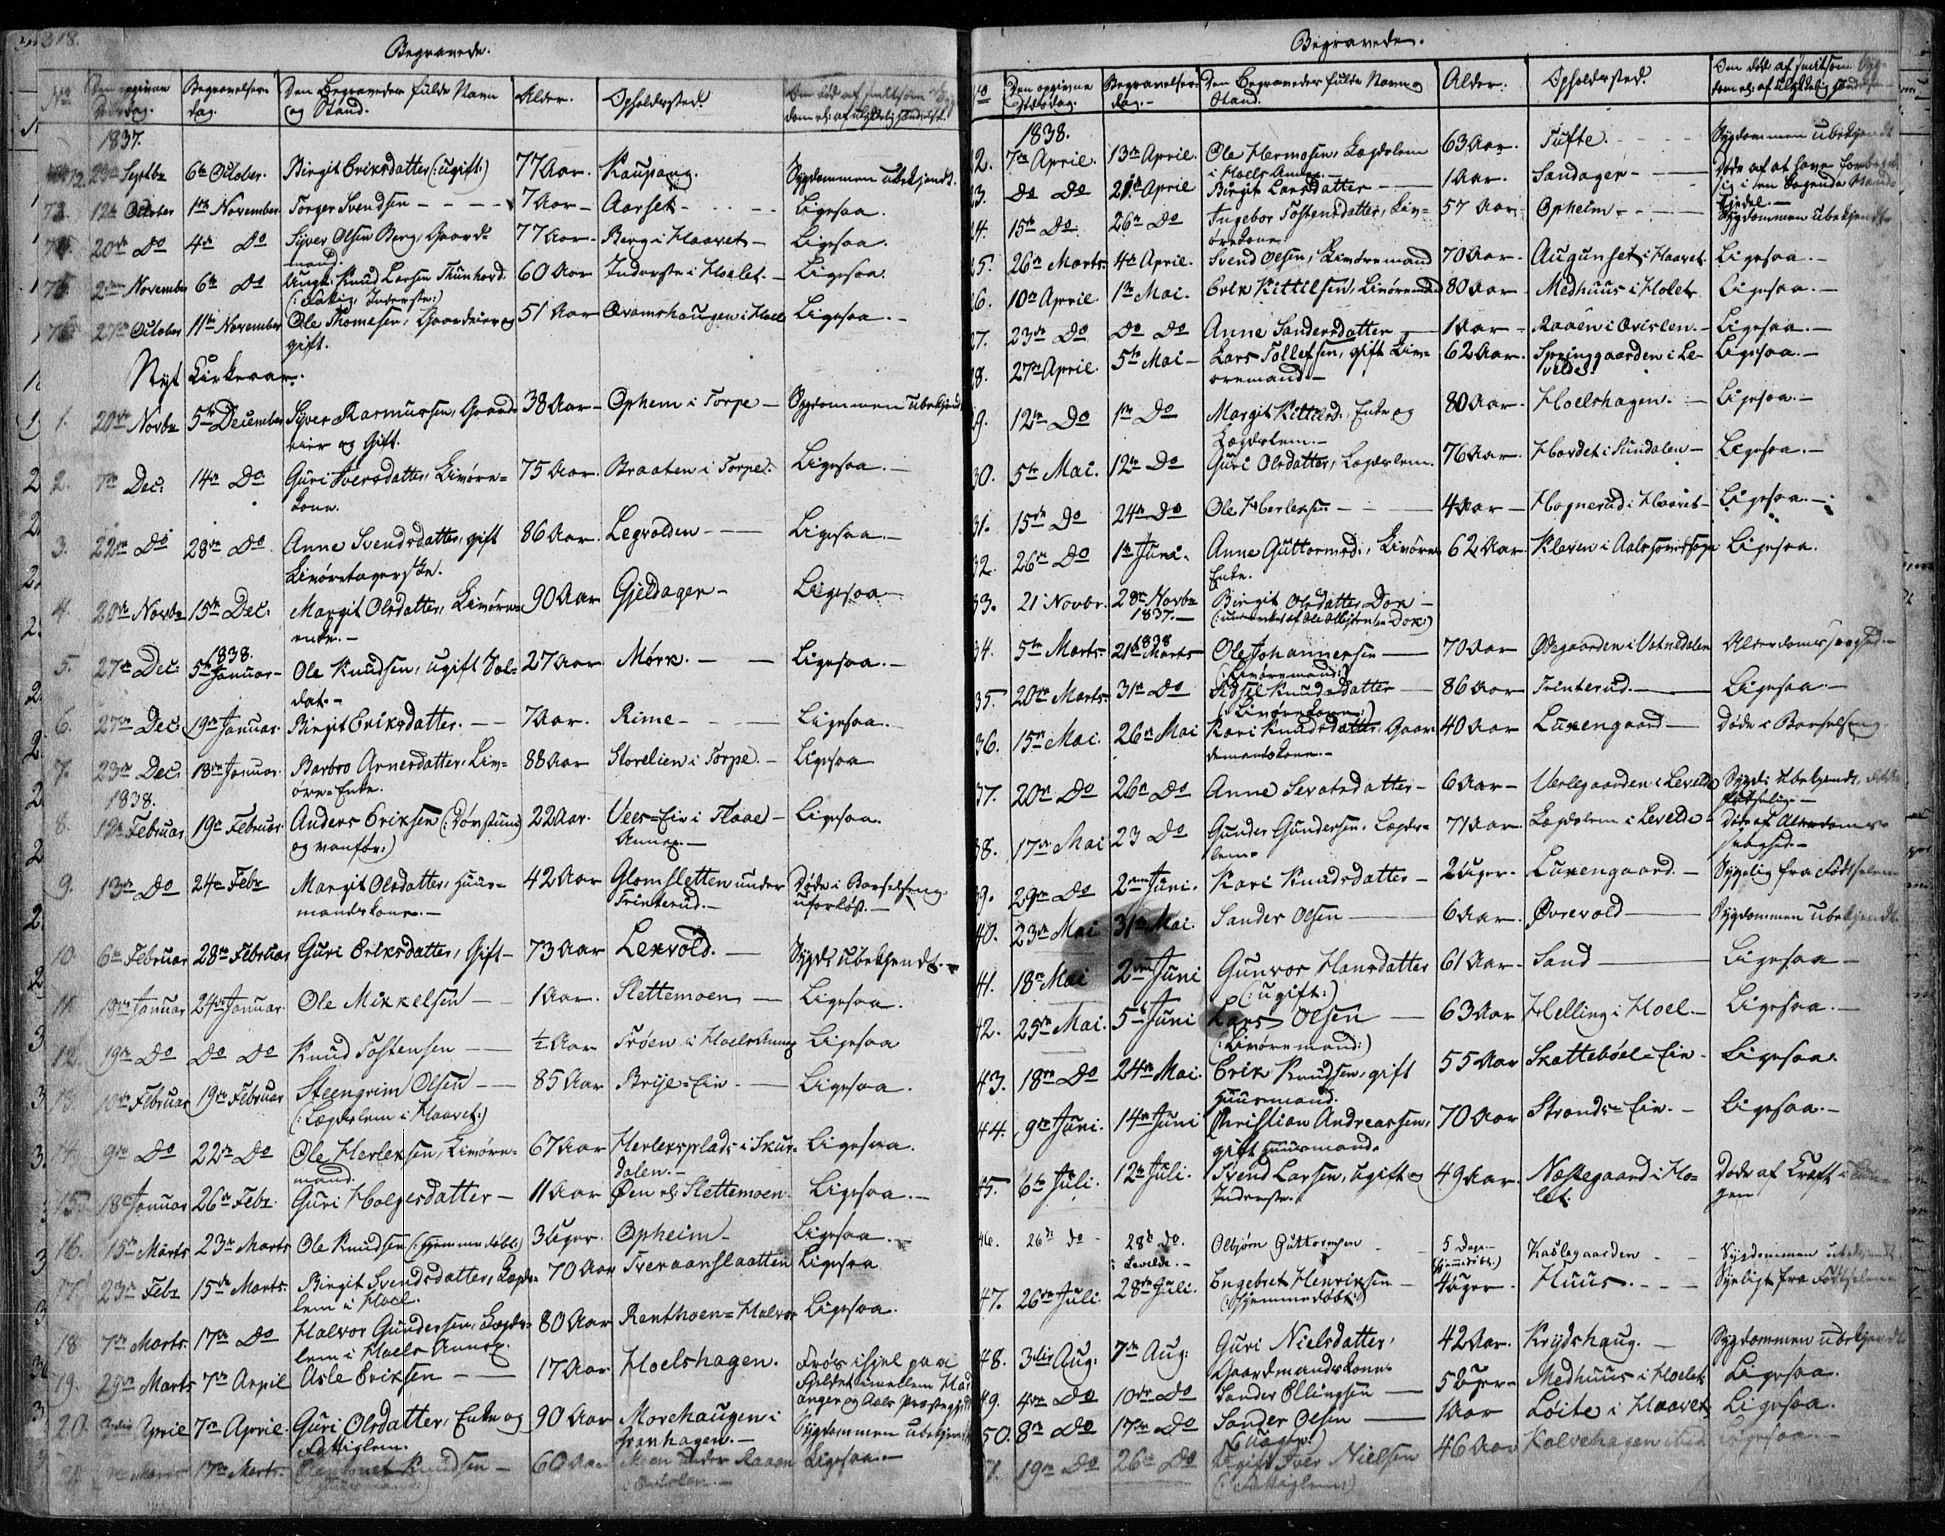 318.
Begravede.
No Den opgivne Dødsdag. Begravelses- dag. Den Begravedes fulde Navn og Stand. Alder. Opholdssted. Om død af smitsom Syg- dom el: af ulykkelig Hændelse.
1837.
72. 29de Septbr 6te October. Birgit Eriksdatter (: ugift:) 77 Aar. Kaupang. Sygdommen ubekjendt.
73. 12te October 1ste November Torger Svendsen - - - 7 Aar - Aarset - - - Ligesaa.
74. 20de Do 4de Do Siver Olsen Berg, Gaard-
mand. 77 Aar - Berg i Haavet - Ligesaa.
75. 2den November 6te Do Ungk: Knud Larsen Thunhovd.
(: Fattig Inderste:) 60 Aar Inderste i Hoelet - Ligesaa.
76. 27de October 11te November Ole Thomesen, Gaardeier og
gift. 51 Aar Qvamshaugen i Hoel Ligesaa. -
Nyt Kirkeaar.
1. 20de Novbr 5te December Siver Rasmussen, Gaard-
eier og Gift. 38 Aar - Ophem i Torpe - Sygdommen ubekjendt
2. 7de Dec: 14de Do Guri Iversdatter, Livøre-
kone. 75 Aar. Braaten i Torpe. Ligesaa. -
3. 22de Do 28de Do. Anne Svendsdatter, gift
Livøretagerske. 86 Aar. Legvolden - - Ligesaa. -
4. 20de Novbr 15de Dec. Margit Olsdatter, Livøre-
enke. - 90 Aar Gjeldager - Ligesaa -
5. 27de Dec. 1838.
5te Januar - Ole Knudsen, ugift Sol-
dat. - 27 Aar Mørk. - - Ligesaa. -
6. 27de Dec. 19de Januar. Birgit Eriksdatter. - - 7 Aar. Rime - - - Ligesaa. -
7. 23de Dec. 18de Januar. Barbro Arnesdatter, Liv-
øre-Enke. 88 Aar Storelien i Torpe. - Ligesaa
1838.
8. 12te Februar 19de Februar. Anders Eriksen (: Døvstum
og vanfør:) 22 Aar. Vees-Eie i Flaae -
Annex. - Ligesaa.
9. 13de Do 24de Febr Margit Olsdatter, Huus-
mandskone. - 42 Aar Glomsletten under
Trinterud. - Døde i Barselseng
uforløst. -
10. 6te Februar 28de Februar Guri Eriksdatter, Gift - 73 Aar Lexvold. - Sygd: ubekjendt. -
11. 18de Januar 24de Januar. Ole Mikkelsen - - 1 Aar. Slettemoen - Ligesaa.
12. 19de Do Do Do Knud Tostensen - - ½ Aar Trøen i Hoels Annex Ligesaa
13. 10de Februar 19de Februar Steengrim Olsen - -
(: Lægdslem i Haavet:) 85 Aar Brye-Eie - - Ligesaa.
14. 9de Do 22de Do Ole Herleksen, Livøre-
mand. 67 Aar Herleksplads i Skur-
dalen. - Ligesaa.
15. 18de Januar 26de Febr. Guri Holgersdatter - 11 Aar Øen el: Slettemoen. Ligesaa. -
16. 15de Marts 23de Marts Ole Knudsen (: hjemmedøbt:) 3 Uger. Opheim - Ligesaa. -
17. 23de Febr 15de Marts. Birgit Svendsdatter, Lægds-
lem i Hoel. 70 Aar Tveraanslaatten Ligesaa
18 7de Marts. 17de Do Halvor Gundersen, Lægds-
lem i Hoels Annex. 80 Aar Renthoen-Halvor Ligesaa.
19. 29de Marts 7de April Asle Eriksen - - 17 Aar Hoelshagen. Frøs ihjel paa
Fjeldet imellem Har-
anger og Aals Præstegjeld
20. 3die April 7de April. Guri Olsdatter, Enke og
Fattiglem. 90 Aar Morehaugen i
Granhagen. - Sygdommen ubekjendt
21. Marts 17de Marts. Knudsen -
60 Aar Moen under Raaen
Ligesaa -
Begravede.
No Den opgivne Dødsdag. Begravelses- dag. - Den Begravedes fulde Navn og Stand. Alder. Opholdssted. Om død af smitsom Syg- dom el: af ulykkelig Hændelse.
1838.
22. 7de April. 13de April. Ole Hermosen, Lægdslem
i Hoels Annex - 63 Aar. Tufte. - - Sygdommen ubekjendt
23. Do Do 21de April Birgit Larsdatter - - 1 Aar. Sandager - - - Døde af at have forbrændt
sig i en kogende Vand-
kjedel. -
24. 15de Do. 26de Do Ingebor Tostensdatter, Liv-
ørekone. 57 Aar. Opheim - - - Sygdommen ubekjendt
25. 26de Marts. 4de April. Svend Olsen, Livøremand 70 Aar. Augunset i Haavet Ligesaa. -
26. 10de April 1ste Mai. Erik Kittilsen, Livøremand 80 Aar. Medhuus i Holet Ligesaa. -
27. 23de Do Do Do Anne Sandersdatter - 1 Aar - Raaen i Qvislen. - Ligesaa. -
28. 27de April 5te Mai - Lars Tollefsen, gift Liv-
øremand. - 62 Aar. Springgaarden i Le-
velde. Ligesaa. -
29. 12te Do 1ste Do Margit Kittelsd:, Enke og
Lægdslem. - 80 Aar. Hoelshagen. - Ligesaa. -
30. 5te Mai. 12te Do Guri Olsdatter, Lægdslem. 76 Aar. Hovdet i Sundalen - Ligesaa. -
31. 15de Do 24de Do Ole Herleksen - - - 4 Aar - Hognerud i Haavet - Ligesaa. -
32. 26de Do 1ste Juni. Anne Guttormsd:, Livøre
Enke. 62 Aar. Kleven i Aals Hovedsogn Ligesaa.
33. 21 Novbr. 28de Novbr
1837. - Birgit Olsdatter Dok -
34. 5te Marts. 1838
21de Marts Ole Johannesen -
(: Livøremand:) 70 Aar Øvregaarden i Vatsdalen Alderdomssvaghed. -
35. 20de Marts. 31te Do Sidsil Knudsdatter -
(: Livørekone:) 86 Aar - Trinterud. - Ligesaa. -
36. 15de Mai. 26de Mai Kari Knudsdatter, Gaar-
demandskone. - 40 Aar Luxengaard - Døde i Barselseng
37. 20de Do 26de Do Anne Sevatsdatter - 6 Aar - Værlegaarden i Levelde Sygd: ubekjendt,
38. 17de Mai 23 Do Gunder Gundersen, Lægds-
lem. 71 Aar. Lægdslem i Levelde - Døde af Alderdoms-
svaghed. -
39. 29de Do 2den Juni. Kari Knudsdatter - 2 Uger. Luxengaard. - Sygelig fra Fødselen
40. 23de Mai 31te Mai. Sander Olsen - 6 Aar. Øvrevold - Sygdommen ubekjendt.
41. 18de Mai 2den Juni Gunvor Hansdatter
(: ugift:) 61 Aar. Sand - Ligesaa -
42. 25de Mai. 5te Juni Lars Olsen -
(: Livøremand:) 63 Aar Helling i Hoel. - Ligesaa. -
43. 18de Do 24de Mai. Erik Knudsen, gift
Huusmand. 55 Aar Skattebøel-Eie - Ligesaa.
44. 9de Juni. 14de Juni Christian Andreassen,
gift Huusmand. 70 Aar Strands-Eie. - Ligesaa. -
45. 6te Juli. 12te Juli. Svend Larsen, ugift og
Inderste. 49 Aar. Næstegaard i Ho-
let. Døde af Kræft i
46. 26de do 28de do.
i Levelde. - Olbjørn Guttormsen 5 Dage -
(hjemmedøbt.) Kaslegaarden - Sygdommen ubekjendt.
47. 26de Juli 28de Juli. Engebret Henriksen -
(: Hjemmedøbt:) 4 Uger - Huus. - - Sygeligt fra Fødselen
48. 3die Aug. 7de Aug. Guri Nielsdatter,
Gaardmandskone. 42 Aar. Krydshaug. - Sygdommen ubekjendt
49. 4de Do 10de Do Sander Ellingsen - 5 Uger - Medhuus i Hoelet Ligesaa.
50. 8de Do 17de Do Sander Olsen - 1 Aar Løite i Haavet Ligesaa.
51. 19de Do 26de Do Ugift Iver Nielsen
(: Fattiglem:) 46 Aar Kalvehagen Ligesaa. -